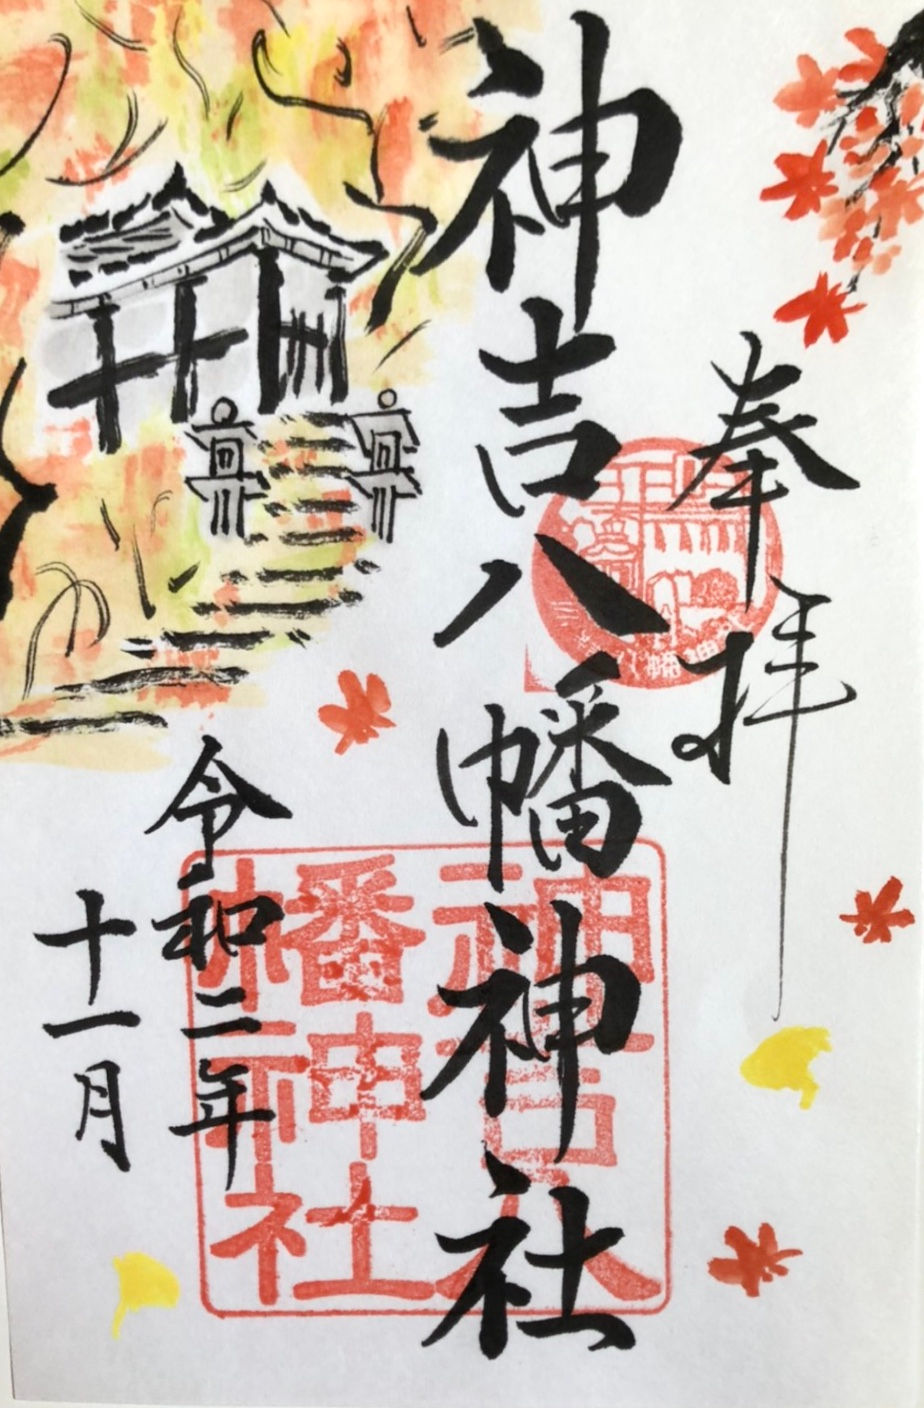 奉拝
神吉八幡神社
神吉八
幡神社
令和二年
十一月